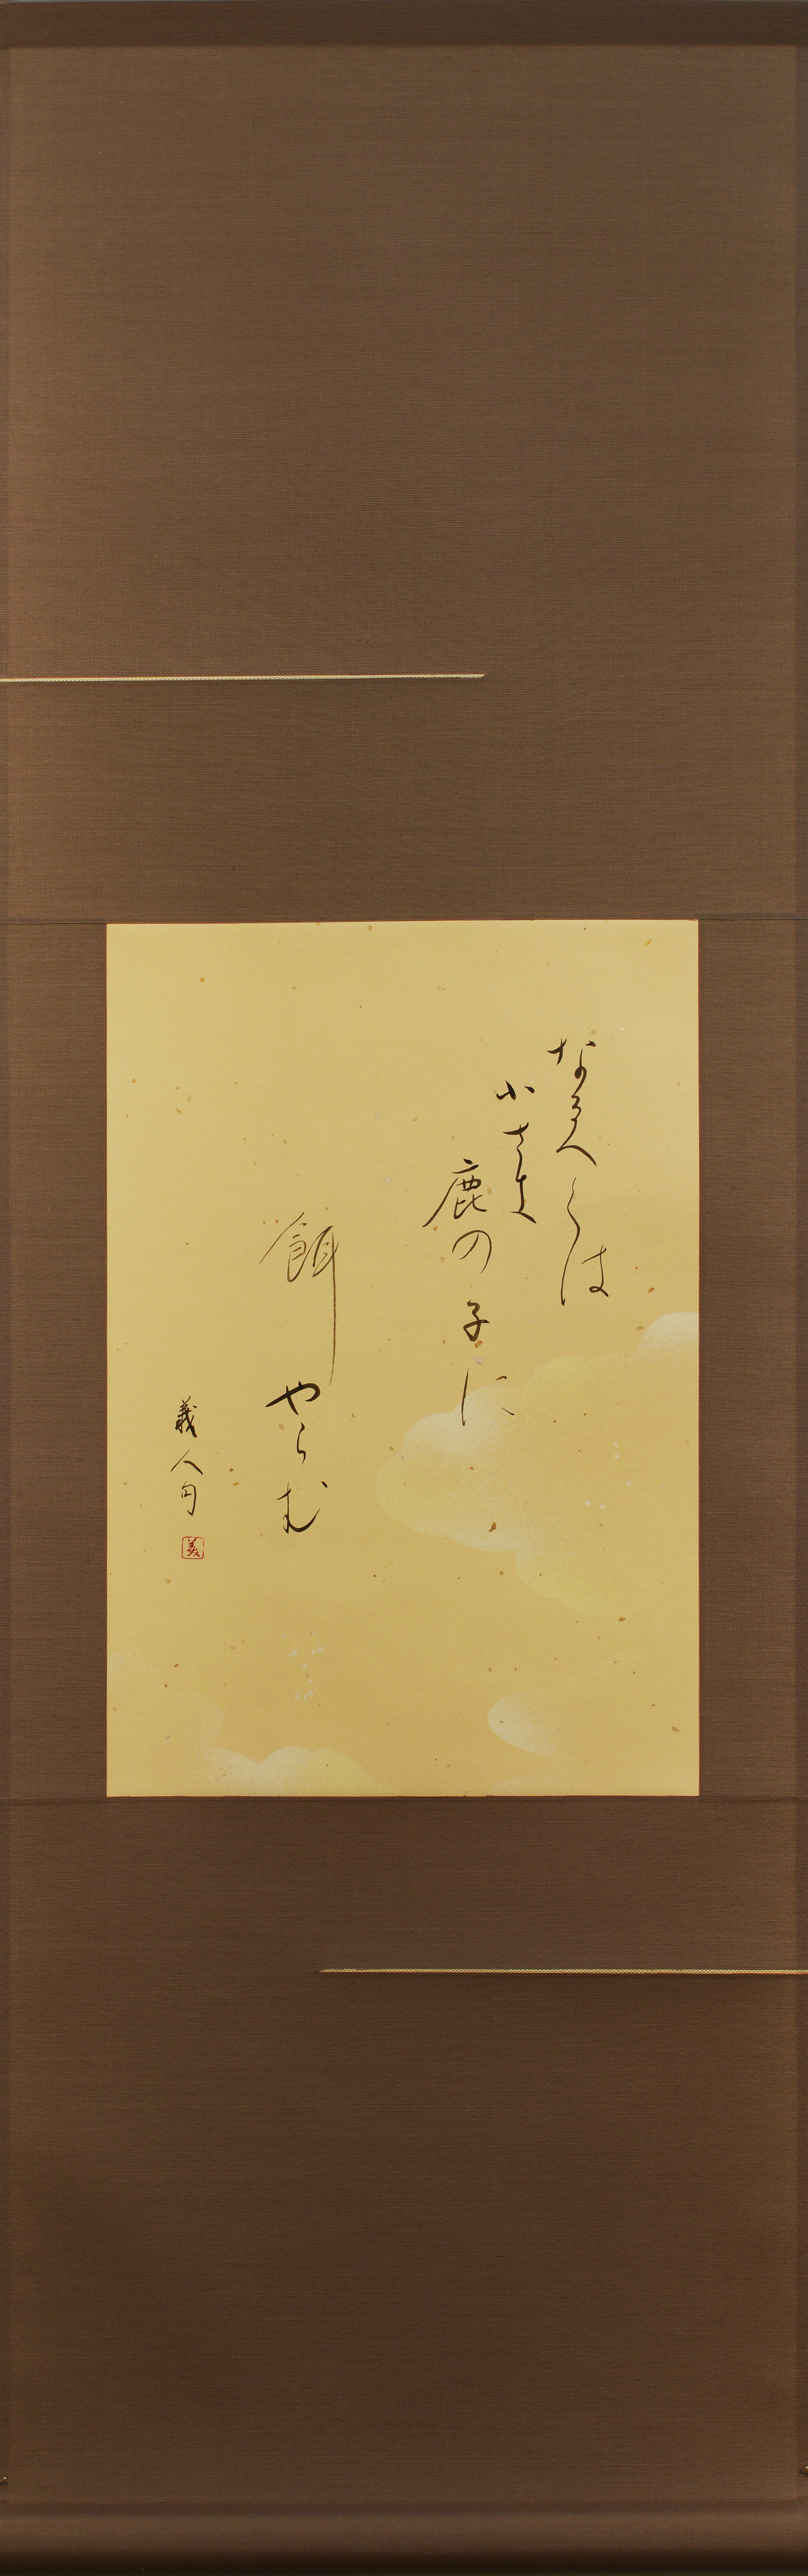 なるべくは
小さき
鹿の子に
餌やらむ
義人句